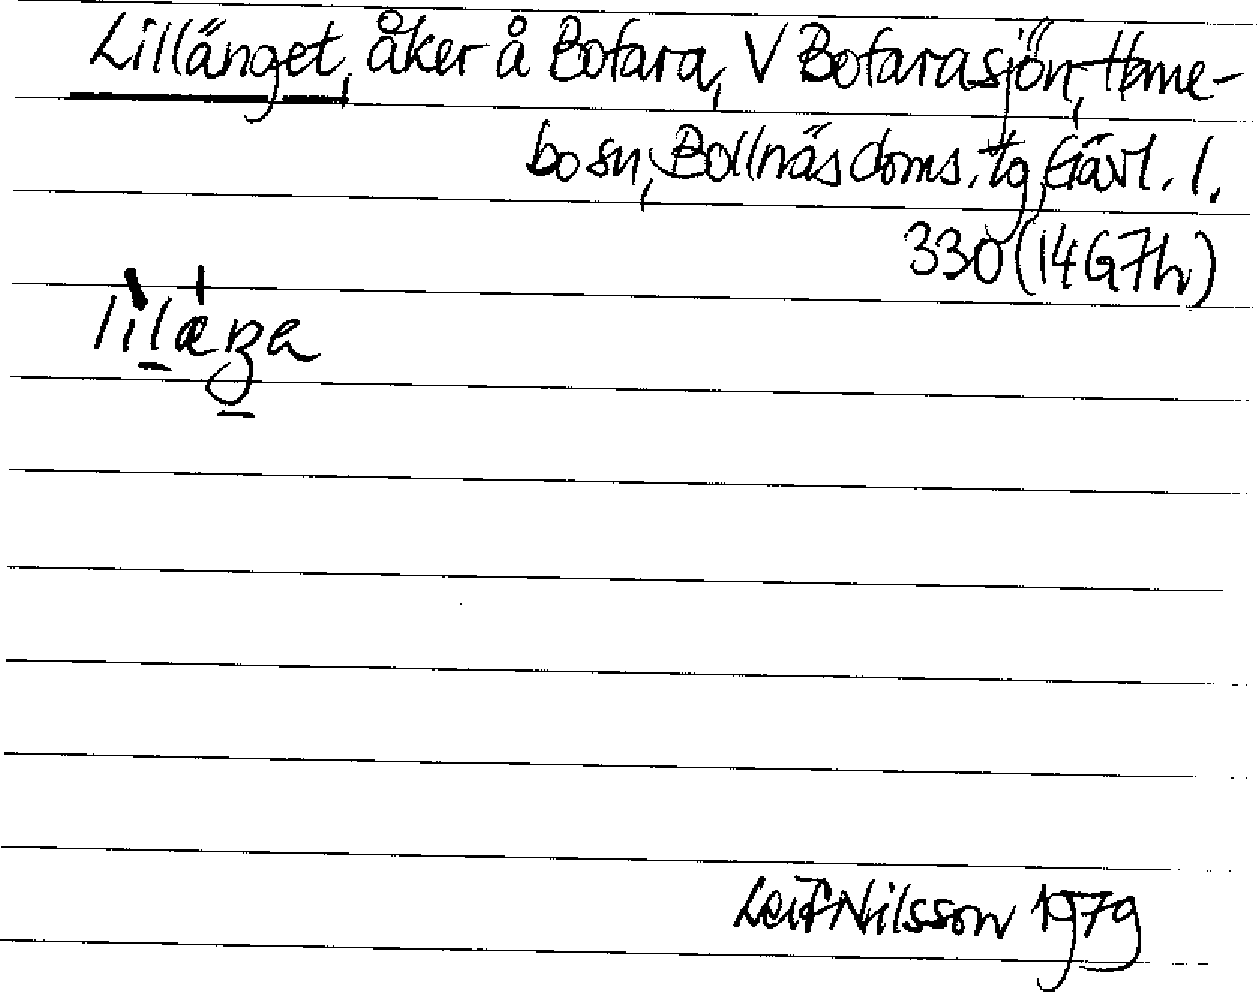 Lillänget, åker å Bofara, V Bofarasjön, Hane-
bo sn, Bollnäs doms. tg, Gävl. l.
330 (14G7h)
Leif Nilsson 1979